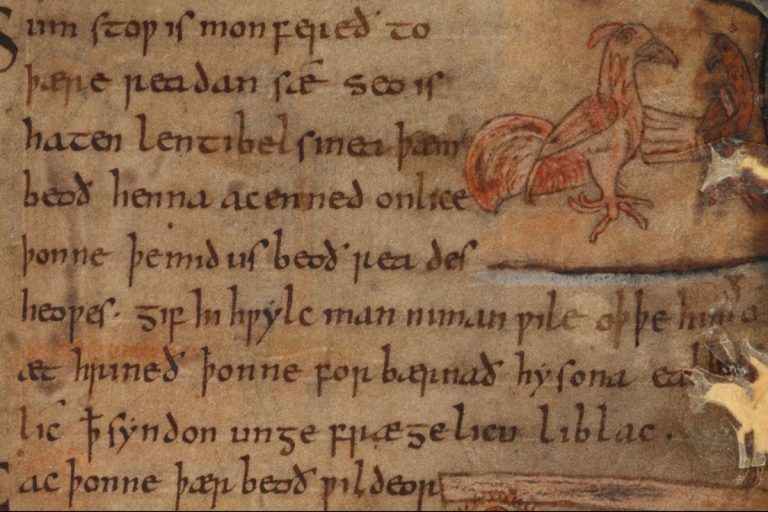 Sum stoƿ is mon fereð to
þære readan sǽ seo is
haten lentibelsinea þær in
beoð henna acenned onlice
þonne þe mid us beoð rea des
heoƿes. gif hi hƿylc man niman ƿile oþþe
æt hrineð þonne for bærnað hy sona
líc ꝥ syndon unge fræge licu liblac.
ac þonne þær beoð ƿildeor